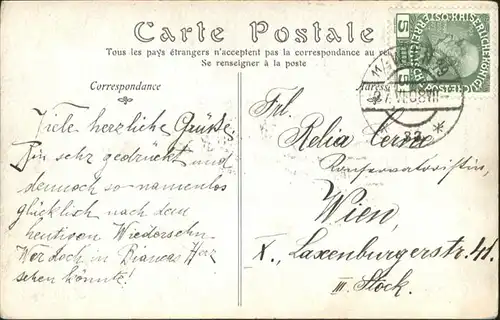 Carte Postale
Tous les pays étrangers n'acceptent pas la correspondance au
Se renseigner à la poste
Correspondance
Viele herzliche Grüße
Bin sehr gedrückt und
dennoch so namenlos
glücklich nach dem
heutigen Wiedersehn.
Wer doch in Bianca's Herz
sehen könnte!
Frl.
Relia
Konservatoristin,
Wien,
X., Laxenburgerstr. 41.
III. Stock.
5 5